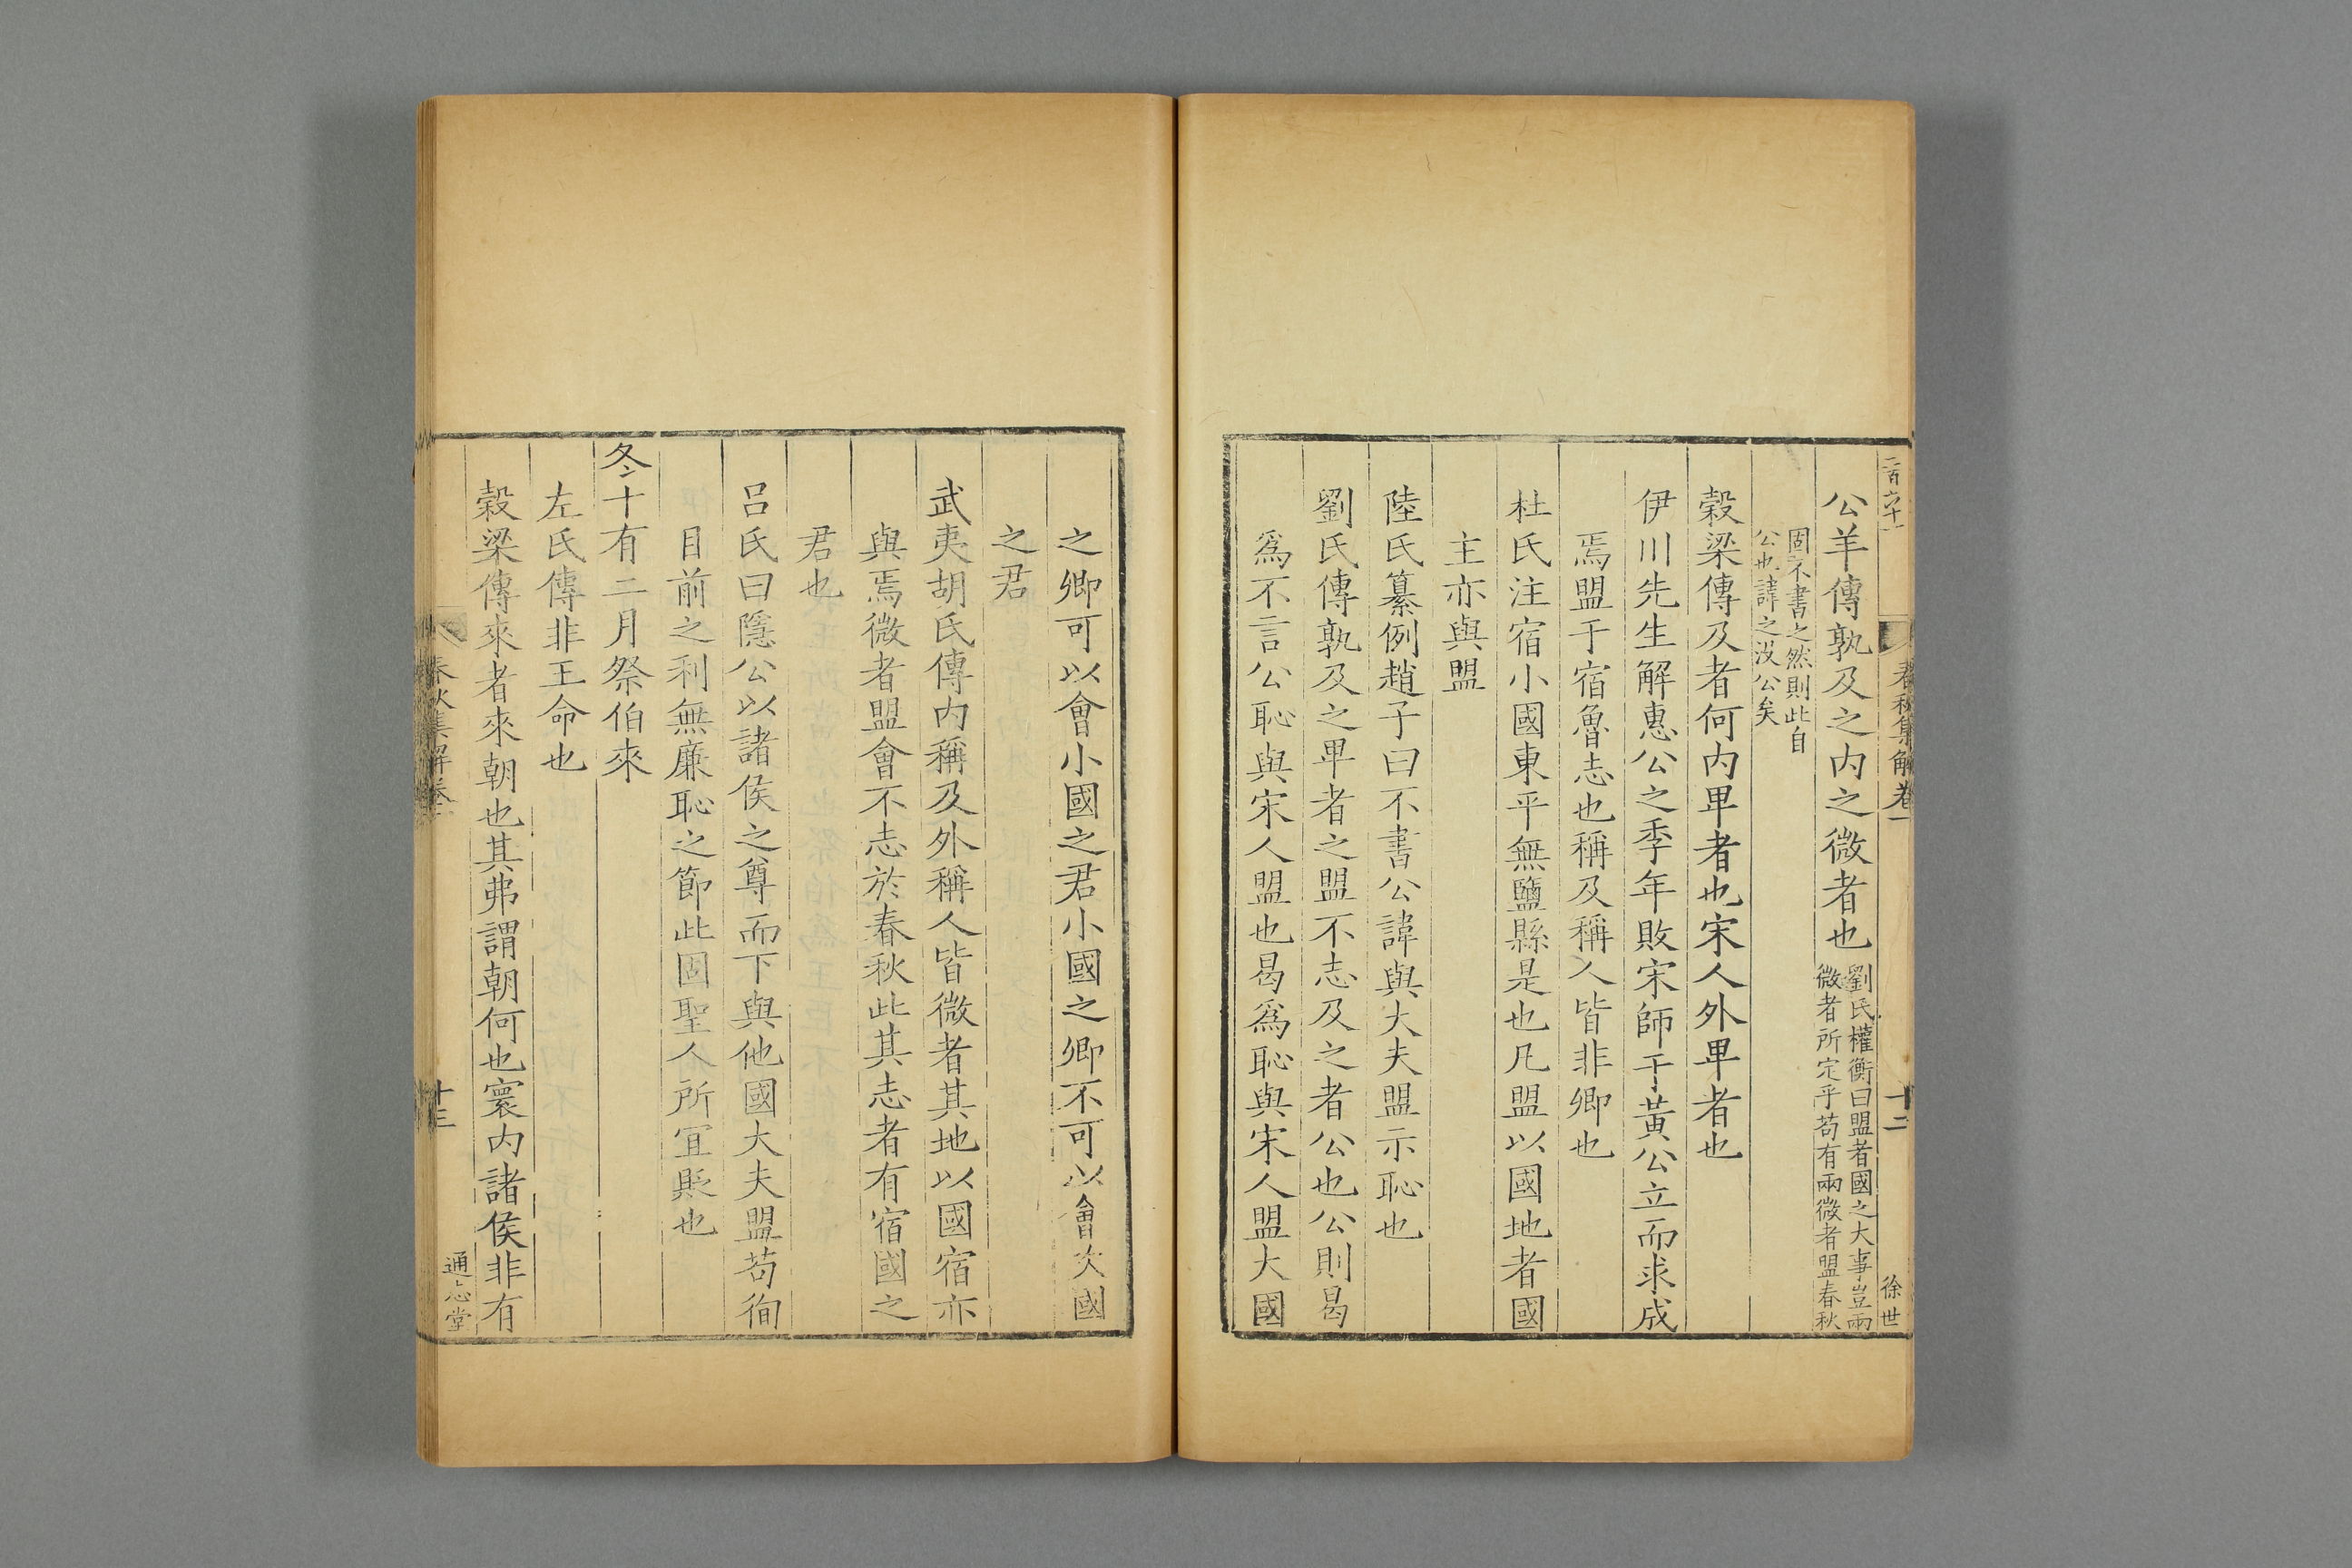 二百六十一
春秋集解卷一
十二
徐世
公羊傳孰及之內之微者也
劉氏權衡曰盟者國之大事豈兩
微者所定乎苟有兩微者盟春秋
固不書之然則此自
公也諱之没公矣
穀梁傳及者何內卑者也宋人外卑者也
伊川先生解惠公之季年敗宋師于黃公立而求成
焉盟于宿魯志也稱及稱人皆非卿也
杜氏注宿小國東平無鹽縣是也凡盟以國地者國
主亦與盟
陸氏纂例趙子曰不書公諱與大夫盟示恥也
劉氏傳孰及之卑者之盟不志及之者公也公則曷
爲不言公恥與宋人盟也曷爲恥與宋人盟大國
之卿可以會小國之君小國之卿不可以會次國
之君
武夷胡氏傳內稱及外稱人皆微者其地以國宿亦
與焉微者盟會不志於春秋此其志者有宿國之
君也
呂氏曰隱公以諸侯之尊而下與他國大夫盟苟徇
目前之利無廉恥之節此固聖人所宜貶也
冬十有二月祭伯來
左氏傳非王命也
穀梁傳來者來朝也其弗謂朝何也寰內諸侯非有
春秋集解卷一
十三
通志堂